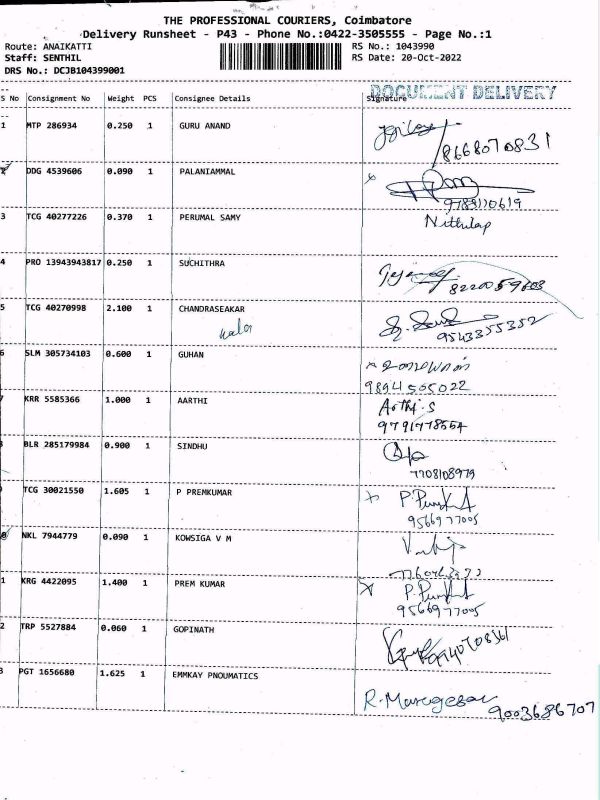 THE PROFESSIONAL COURIERS, Coimbatore
Delivery Runsheet - P43 - Phone No.:0422-3505555 - Page No.:1
Route: ANAIKATTI RS No.: 1043990
Staff: SENTHIL RS Date: 20-Oct-2022
DRS No.: DCJB104399001
DOCUMENT DELIVERY
S No Consignment No Weight PCS Consignee Details Signature
1 MTP 286934 0.250 1 GURU ANAND
8668070831
2 DDG 4539606 0.090 1 PALANIAMMAL
9789110619
3 TCG 40277226 0.370 1 PERUMAL SAMY Nithulap
4 PRO 13943943817 0.250 1 SUCHITHRA
8220059603
5 TCG 40270998 2.100 1 CHANDRASEAKAR
9543355352
6 SLM 305734103 0.600 1 GUHAN
9894505022
7 KRR 5585366 1.000 1 AARTHI Arthi.S
9791778554
BLR 285179984 0.900 1 SINDHU
7708108979
TCG 30021550 1.605 1 P PREMKUMAR
9566977005
NKL 7944779 0.090 1 KOWSIGA V M
1 KRG 4422095 1.400 1 PREM KUMAR
9566977005
2 TRP 5527884 0.060 1 GOPINATH
9940708361
3 PGT 1656680 1.625 1 EMMKAY PNOUMATICS
R. Murugesan
9003686707